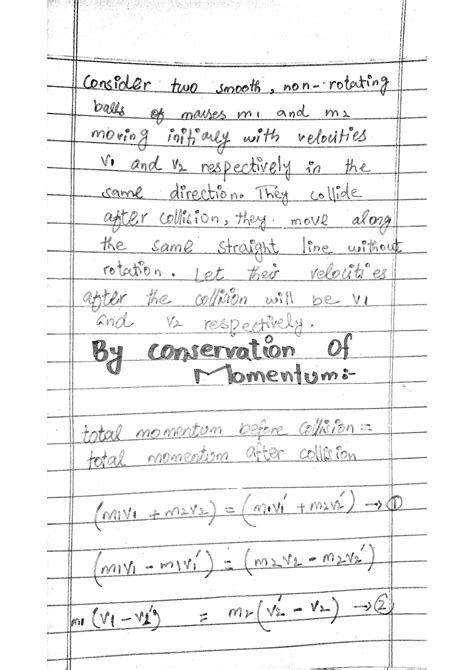 Consider two smooth, non-rotating
balls of masses m1 and m2
moving initialy with velocities
v1 and v2 respectively in the
same direction. They collide
after collision, they move along
the same straight line without
rotation. Let their velocities
after the collision will be v1
and v2 respectively.
By conservation Of
Momentum:-
total momentum before collision =
total momentum after collision
(m1v1 + m2v2) = (m1v1' + m2v2') → ①
(m1v1 - m1v1') = (m2v2 - m2v2')
m1 (v1 - v1') = m2 (v2' - v2) → ②